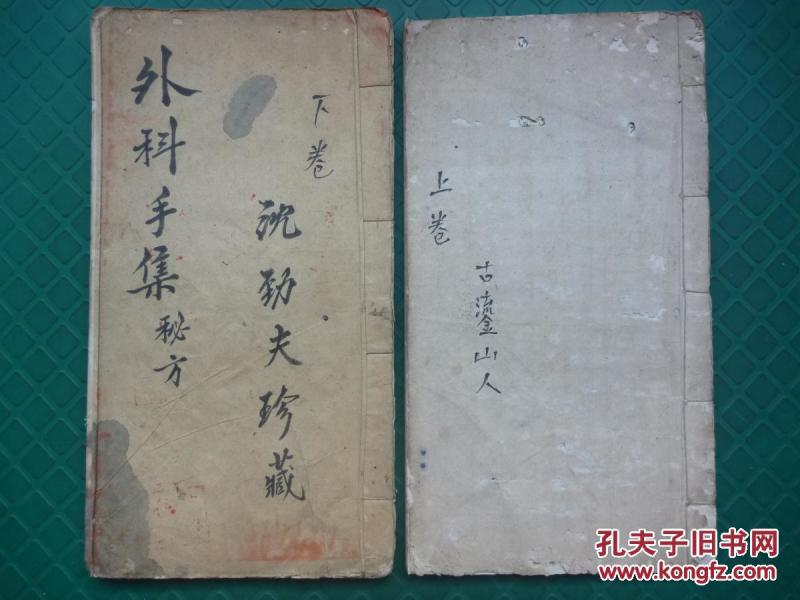 下卷
沈劲夫珍藏
外科手集秘方
上卷
古鎏山人
孔夫子旧书网
www.kongfz.com